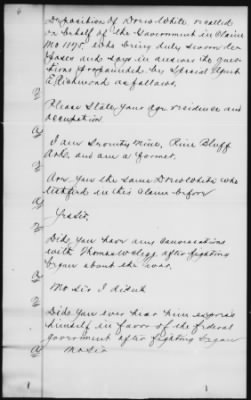 6
Deposition of Doris White recalled
on behalf of the Government in Claim
No 1595. who being duly sworn de
poses and says in answer the ques
tions propounded by Special Agent
E Richmond as follows.
Please State your age residence and
occupation
I am Seventy Nine, Pine Bluff
Ark. and am a farmer.
Are you the same Doris White who
testified in this Claim before
Yes sir.
Did you have any conversations
with Thomas W Clegg after fighting
began about the war.
No Sir I didnt
Did you ever hear him express
himself in favor of the federal
government after fighting began
No Sir